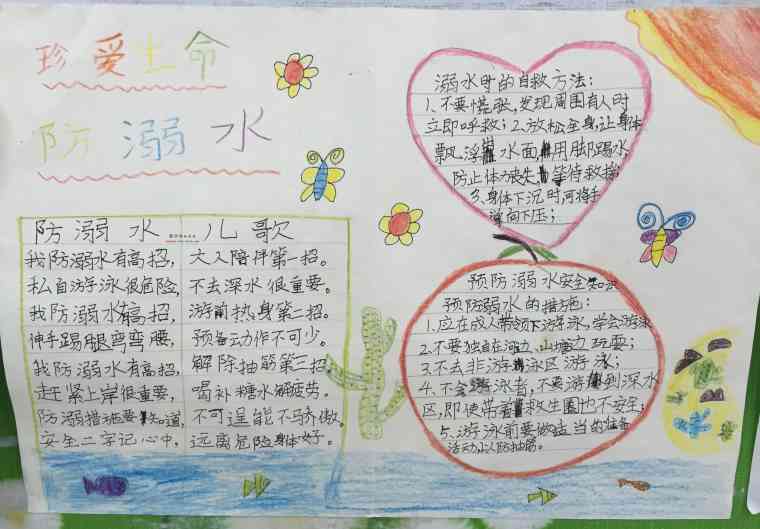 珍爱生命
防溺水
防溺水儿歌
我防溺水有高招，大人陪伴第一招。
私自游泳很危险，不去深水很重要。
我防溺水有高招，游前热身第二招。
伸手踢腿弯弯腰，预备动作不可少。
我防溺水有高招，解除抽筋第三招。
赶紧上岸很重要，喝补糖水解疲劳。
防溺措施要知道，不可逞能不骄傲。
安全二字记心中，远离危险身体好。
溺水时的自救方法：
1、不要慌张，发现周围有人时
立即呼救；2、放松全身，让身体
飘浮水面，用脚踢水，
防止体力丧失，等待救援；
3、身体下沉时可将手
掌向下压；
预防溺水安全知识
预防溺水的措施：
1、应在成人带领下游泳，学会游泳
2、不要独自在河边、山塘边玩耍；
3、不去非游泳区游泳；
4、不会游泳者，不要游到深水
区，即使带着救生圈也不安全；
5、游泳前要做适当的准备
活动，以防抽筋。